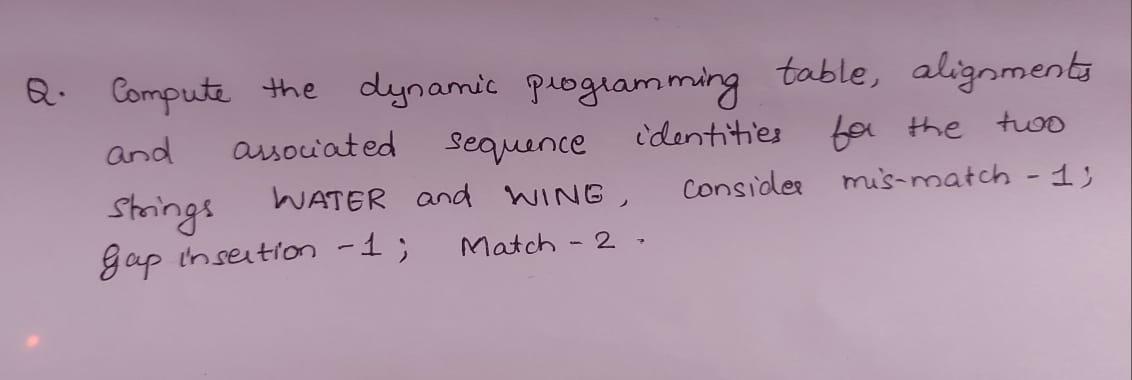 Q. Compute the dynamic programming table, alignments
and associated sequence identities for the two
strings WATER and WING, consider mis-match - 1;
gap insertion - 1; Match - 2.